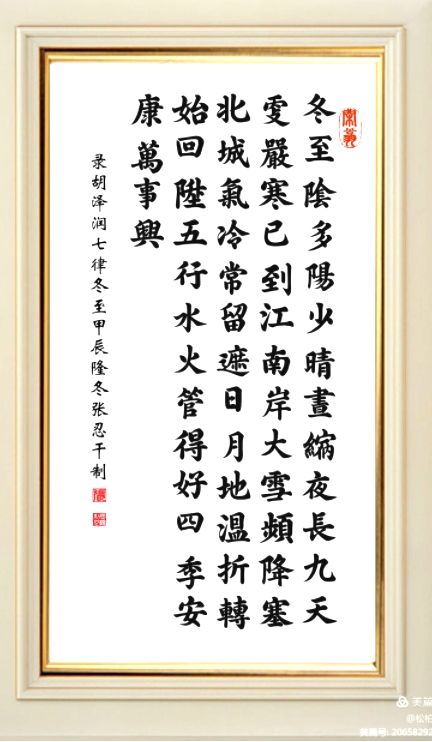 冬至陰多陽少晴晝縮夜長九天
雯嚴寒已到江南岸大雪頻降塞
北城氣冷常留遮日月地溫折轉
始回陞五行水火管得好四季安
康萬事興
录胡泽润七律冬至甲辰隆冬张忍干制
美篇
@松柏
美篇号:20658292